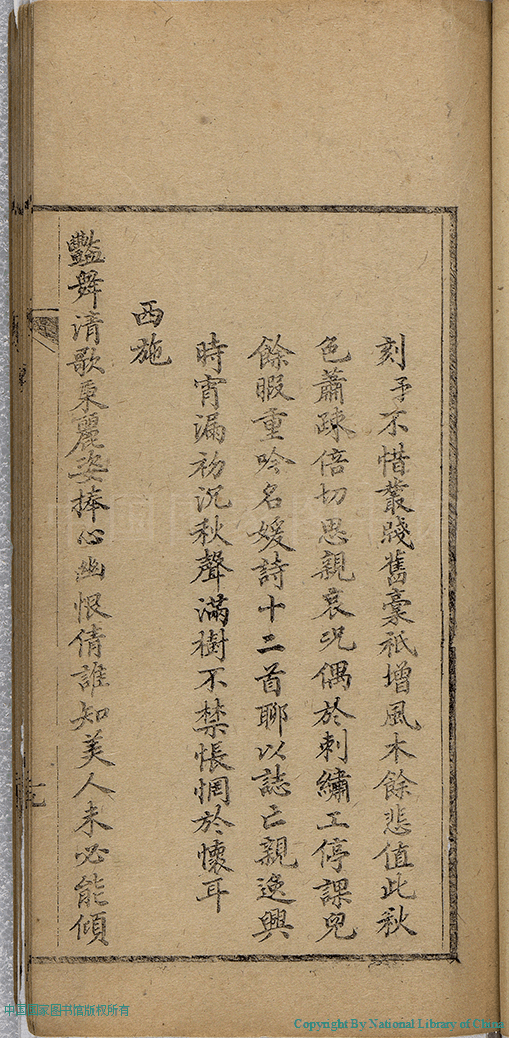 刻予不惜叢殘舊稾祇增風木餘悲值此秋
色蕭疎倍切思親哀况偶於刺繡工停課兒
餘暇重吟名媛詩十二首聊以誌亡親逸興
時宵漏初沉秋聲滿樹不禁悵惘於懷耳
西施
豔舞清歌秉麗姿捧心幽恨倩誰知美人未必能傾
中国国家图书馆版权所有
Copyright By National Library of China